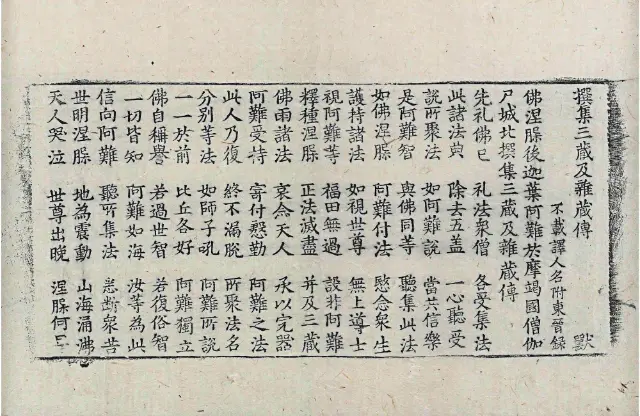 撰集三蔵及雜蔵傳 默
不載譯人名附東晉録
佛涅槃後迦葉阿難於摩竭國僧伽
尸城北撰集三蔵及雜蔵傳
先礼佛已 礼法衆僧 各受集法
此諸法典 除去五盖 一心聽受
說所聚法 如阿難說 當共信樂
是阿難智 與佛同等 聽集此法
如佛涅槃 阿難付法 愍念衆生
護持諸法 如視世尊 無上導士
視阿難等 福田無過 設非阿難
釋種涅槃 正法滅盡 并及三蔵
佛雨諸法 哀念天人 承以完器
阿難受持 寄付慇勤 阿難之法
此人乃復 終不漏脫 所聚法名
分別等法 如師子吼 阿難所說
一一於前 比丘各好 阿難獨立
佛自稱譽 若過世智 若復俗智
一切皆知 阿難如海 汝等為此
信向阿難 聽所集法 悉斷衆苦
世明涅槃 地為震動 山海涌沸
天人哭泣 世尊出晚 涅槃何早